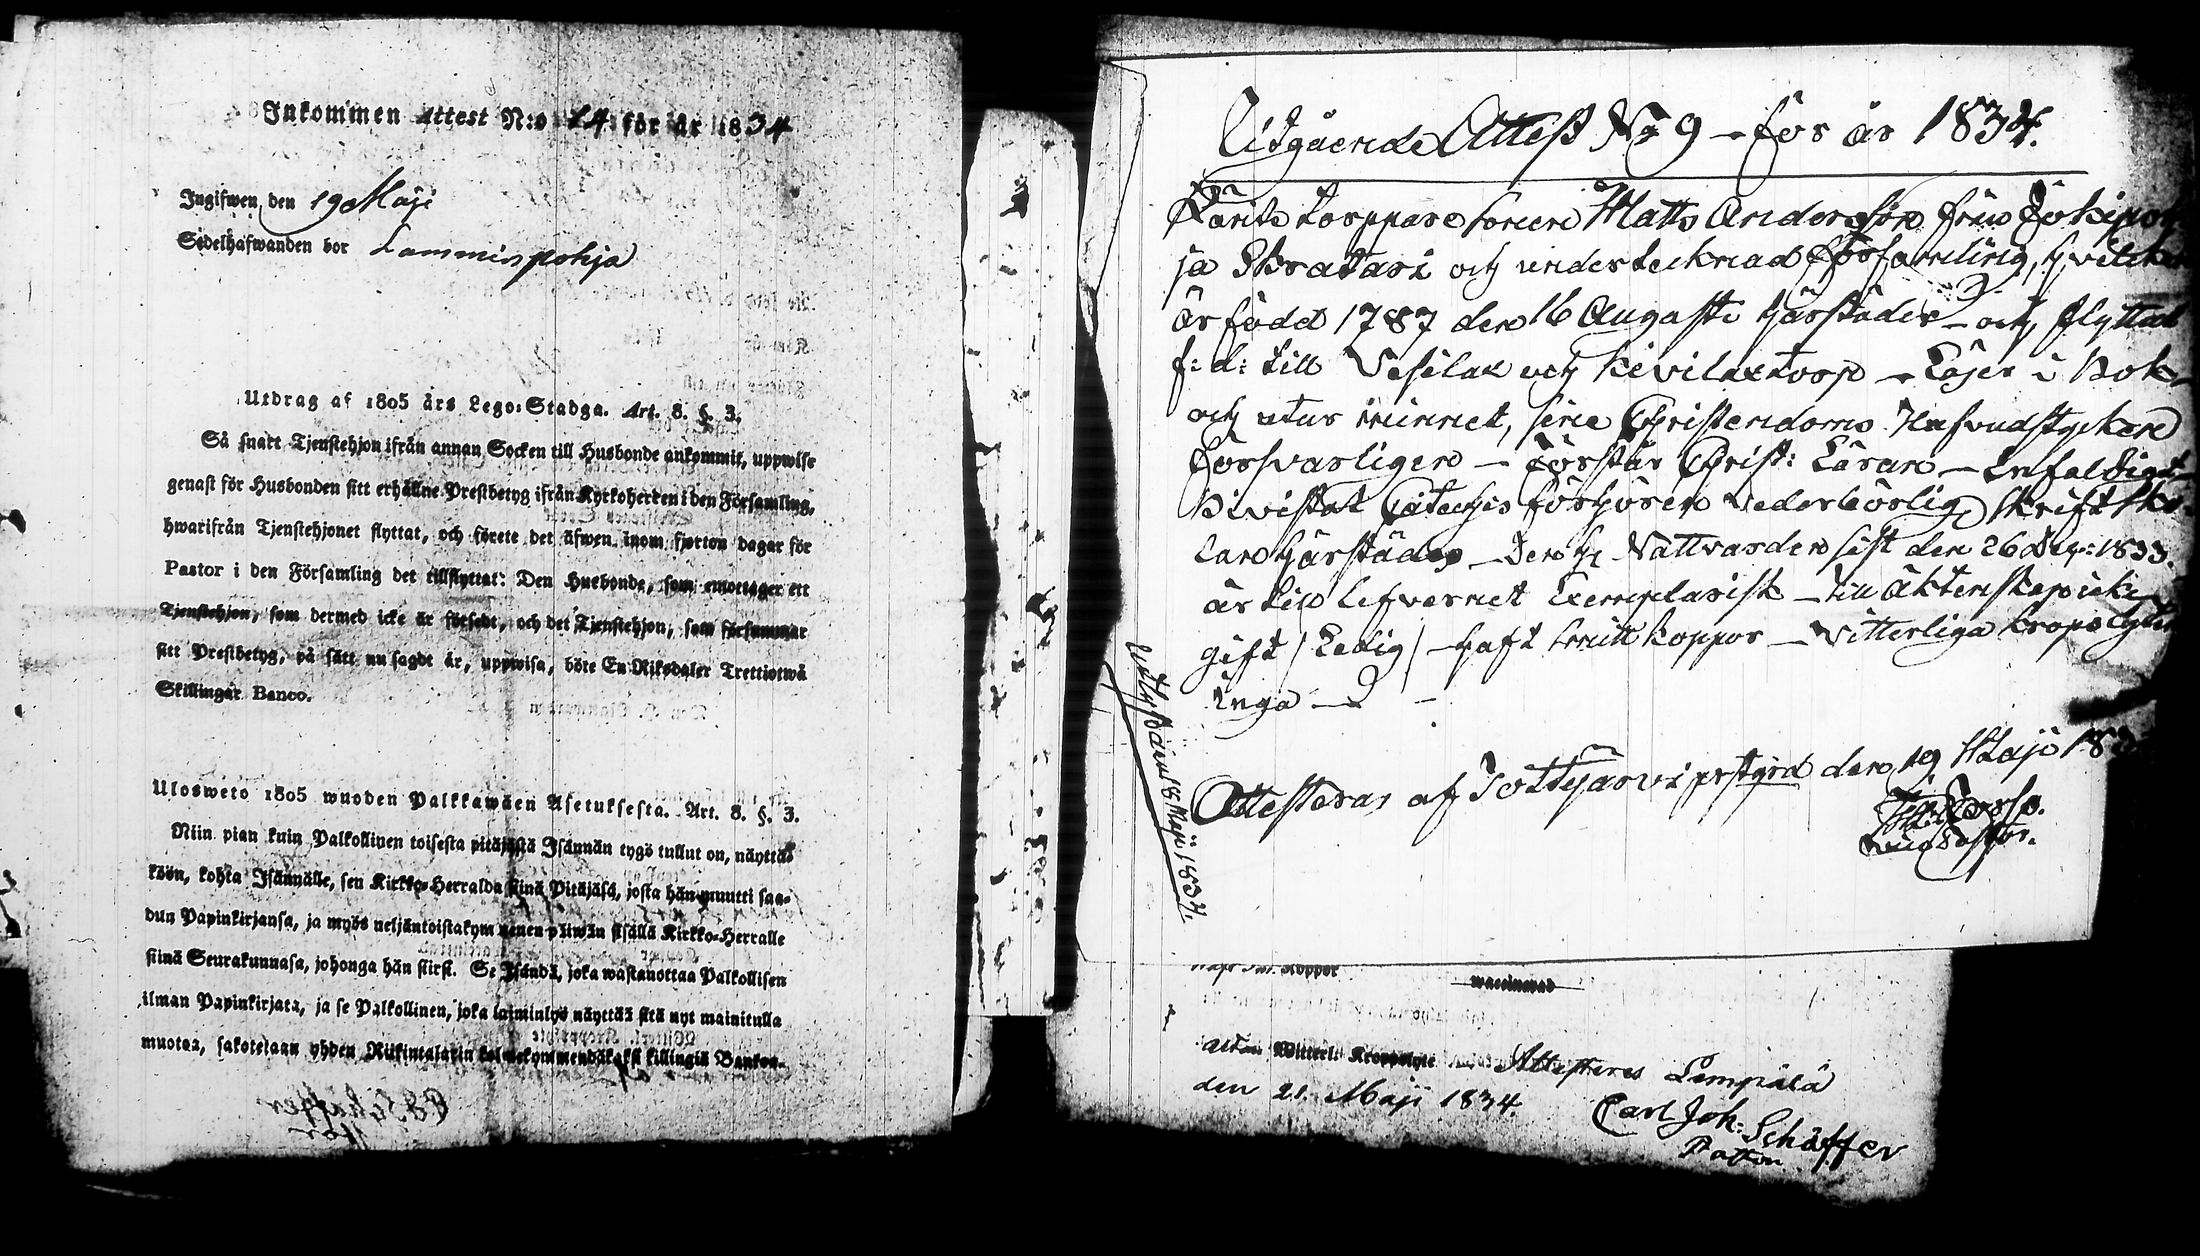 Inkommen Attest N:o 14 för år 1834
Ingifwen den 19 Maji
Sedelhafwanden bor Lamminpohja
Utdrag af 1805 års Lego-Stadga. Art. 8. §. 3.
Så snart Tjenstehjon ifrån annan Socken till Husbonde ankommit, uppwise
genast för Husbonden sitt erhållne Prestbetyg ifrån Kyrkoherren i den Församling,
hwarifrån Tjenstehjonet flyttat, och förete det äfwen inom fjorton dagar för
Pastor i den Församling det tillflyttat: Den Husbonde, som emottager ett
Tjenstehjon, som dermed icke är försedt, och det Tjenstehjon, som försummar
sitt Prestbetyg, på sätt nu sagdt är, uppwisa, böte En Riksdaler Trettiotwå
Skillingar Banco.
Ulosweto 1805 wuoden Palkkawäen Asetuksesta. Art. 8. §. 3.
Niin pian kuin Palkollinen toisesta pitäjästä Isännän tygö tullut on, näyttä-
köön, kohta Isännälle, sen Kirkko-Herralda siinä Pitäjäsä, josta hän muutti saa-
dun Papinkirjansa, ja myös neljäntoistakymmenen päiwän sisällä Kirkko-Herralle
siinä Seurakunnasa, johonga hän siirsi. Se Isändä, joka wastanottaa Palkollisen
ilman Papinkirjata, ja se Palkollinen, joka laiminlyö näyttää sitä nyt mainitulla
muotaa, sakotetaan yhden Riikintalarin kolmekymmendäkaksi killingiä Bankos.
Utgående Attest No 9 - för år 1834.
torppare sonen Matts Andersson från Jokipoh
ja Skratari och undertecknad Församling, hvilken
är född 1787 den 16 Augusti härstädes - och flyttat
f: d: till Vesilax och Kivilax torp - Läser i Bok
och utur minnet, sine Christendoms Hufvudstycken
försvarligen - Förstår Christ: Läran - Enfaldigt
Bivistat Catechis förhören vederbörlig, Skriftsko-
lan härstädes - Den H. Nattvarden sist den 26 Dec: 1833.
är till lefvernet Exemplarisk - till äktenskap icke
gift / Ledig / - haft smitt koppor - Vitterliga kropslyten
inga -
Attesteras af Tottijärvi prstgrd den 19 Maji 183
Torpo.
Pastor.
18 Maji 1834.
Koppor
waccinerad
Witterl. Kroppslyte Attesteres Lempälä
den 21. Maji 1834.
Carl Joh: Schäffer
Pastor